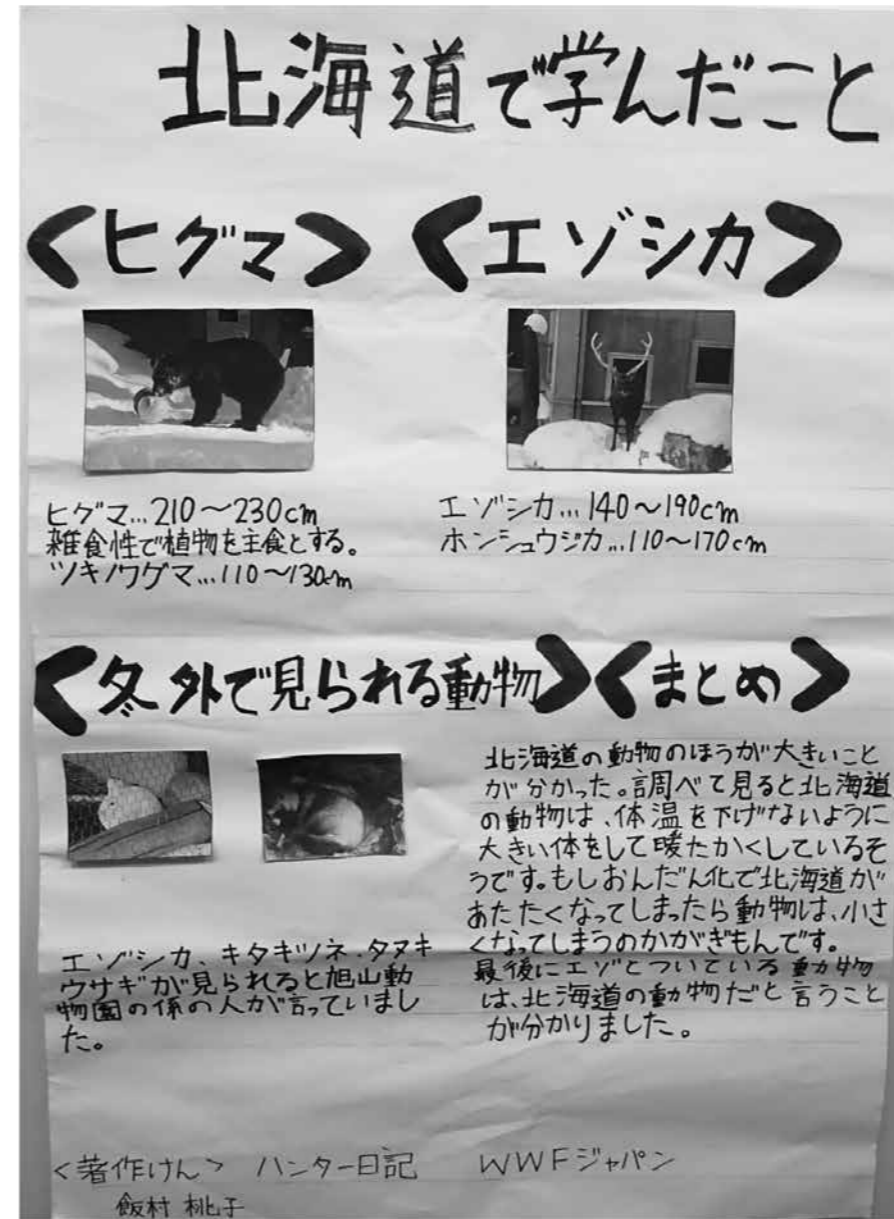 北海道で学んだこと
<ヒグマ>
ヒグマ…210～230cm
雑食性で植物を主食とする。
ツキノワグマ…110～130cm
<エゾシカ>
エゾシカ…140～190cm
ホンシュウジカ…110～170cm
<冬外で見られる動物>
エゾシカ、キタギツネ、タヌキ
ウサギが見られると旭山動
物園の係の人が言っていまし
た。
<まとめ>
北海道の動物のほうが大きいこと
が分かった。調べて見ると北海道
の動物は、体温を下げないように
大きい体をして暖たかくしているそ
うです。もしおんだん化で北海道が
あたたくなってしまったら動物は、小さ
くなってしまうのかがぎもんです。
最後にエゾとついている動物
は、北海道の動物だと言うこと
が分かりました。
<著作けん> ハンター日記 WWFジャパン
飯村 桃子